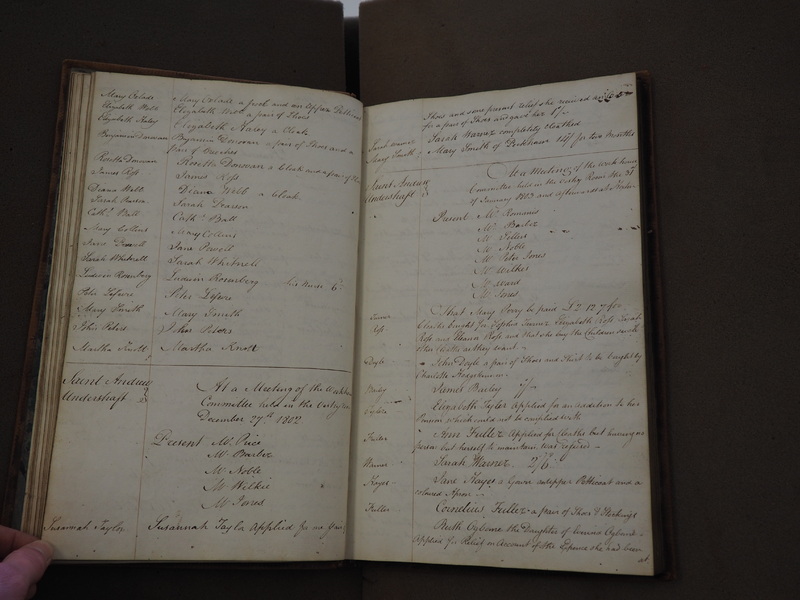 Mary Oxlade Mary Oxlade a frock and an upper Petticoat
Elizabeth Webb Elizabeth Webb a pair of Shoes
Elizabeth Haley Elizabeth Haley a Cloak
Benjamin Donovan Benjamin Donovan a pair of Shoes and a
pair of Breeches
Rosetta Donovan Rosetta Donovan a cloak and a pair of
James Ross James Ross
Diana Webb Diana Webb a cloak
Sarah Sarah
Cath. Ball Cath. Ball
Mary Collins Mary Collins
Jane Powell Jane Powell
Sarah Whitnell Sarah Whitnell
Ludwin Rosenberg Ludwin Rosenberg his Nurse 6
Peter Lefevre Peter Lefevre
Mary Smith Mary Smith
John Peters John Peters
Martha Knott Martha Knott
Saint Andrew
Undershaft
At a Meeting of the Workhouse
Committee held in the Vestry
December 27th 1802
Present Mr. Price
Mr. Barber
Mr. Noble
Mr. Wilkie
Mr. Jones
Susannah Taylor Susannah Taylor Applied for
Shoes and some present relief she received
for a pair of Shoes and gave her 5/-
Sarah Warner completely cloathed
Mary Smith Mary Smith of Peckham for two Months
Saint Andrew
Undershaft
At a Meeting of the Work house
Committee held in the Vestry Room the 31
of January 1803 and afterwards at
Present Mr. Romanis
Mr. Barber
Mr.
Mr. Noble
Mr. Peter Jones
Mr. Wilkes
Mr. Ward
Mr. Jones
That Mary Perry be paid £2 12 7 for
Turner
Cloaths bought for Sophia Turner Elizabeth Ross Sarah
Ross
Ross and Hanna Ross and that she buy the Children such
other Cloaths as they want
Doyle John Doyle a pair of Shoes and Shirt to be bought by
Charlotte
Barley James Barley 7/-
Taylor Elizabeth Taylor applied for an addition to her
Pension which could not be complied with
Fuller Ann Fuller Applied for Cloaths but having no
person but herself to maintain was refused
Warner Sarah Warner 2/6
Hayes Jane Hayes a Gown an upper Petticoat and a
coloured Apron
Fuller Cornelius Fuller a pair of Shoes & Stockings
Ruth Ogbourne the Daughter of
Applied for Relief on Account of the Expence she had been
at